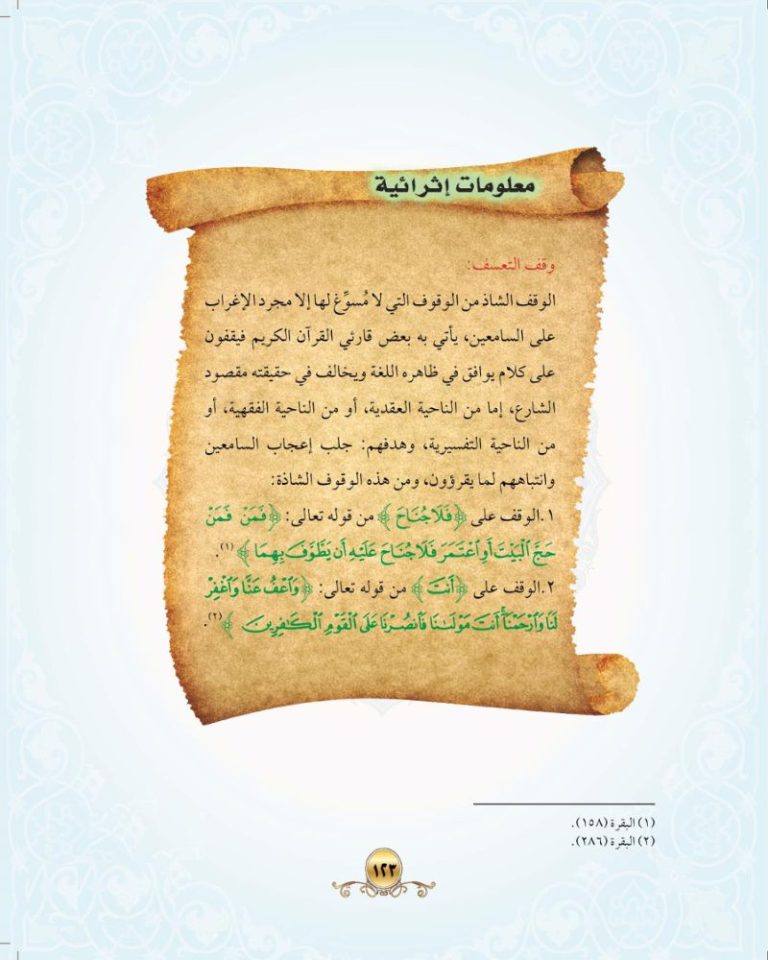 معلومات إثرائية
وقف التعسف:
الوقف الشاذ من الوقوف التي لا مُسوِّغ لها إلا مجرد الإغراب
على السامعين، يأتي به بعض قارئي القرآن الكريم فيقفون
على كلام يوافق في ظاهره اللغة ويخالف في حقيقته مقصود
الشارع، إما من الناحية العقدية، أو من الناحية الفقهية، أو
من الناحية التفسيرية، وهدفهم: جلب إعجاب السامعين
وانتباههم لما يقرؤون، ومن هذه الوقوف الشاذة:
١.الوقف على ﴿فَلَا جُنَاحَ﴾ من قوله تعالى: ﴿فَمَنْ فَمَنْ
حَجَّ ٱلْبَيْتَ أَوِ ٱعْتَمَرَ فَلَا جُنَاحَ عَلَيْهِ أَن يَطَّوَّفَ بِهِمَا﴾(١).
٢.الوقف على ﴿أَنتَ﴾ من قوله تعالى: ﴿وَٱعْفُ عَنَّا وَٱغْفِرْ
لَنَا وَٱرْحَمْنَآۚ أَنتَ مَوْلَىٰنَا فَٱنصُرْنَا عَلَى ٱلْقَوْمِ ٱلْكَٰفِرِينَ﴾(٢).
(١) البقرة (١٥٨).
(٢) البقرة (٢٨٦).
١٢٣